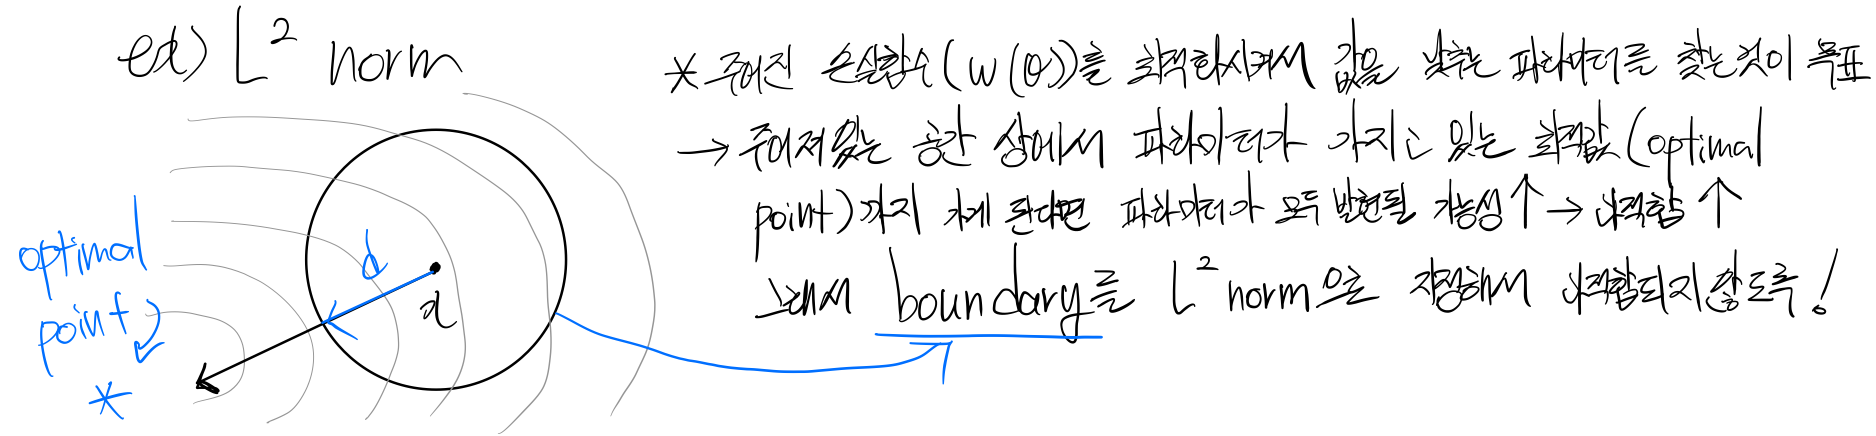 ex) L² norm
* 주어진 손실함수(w(θ))를 최적화시켜서 값을 낮추는 파라미터를 찾는것이 목표
→ 주어져있는 공간 상에서 파라미터가 가지고 있는 최적값(optimal
point)까지 가게 된다면 파라미터가 모두 발현될 가능성↑ → 과적합↑
그래서 boundary를 L² norm으로 지정해서 과적합되지 않도록!
optimal
point
*
d
x